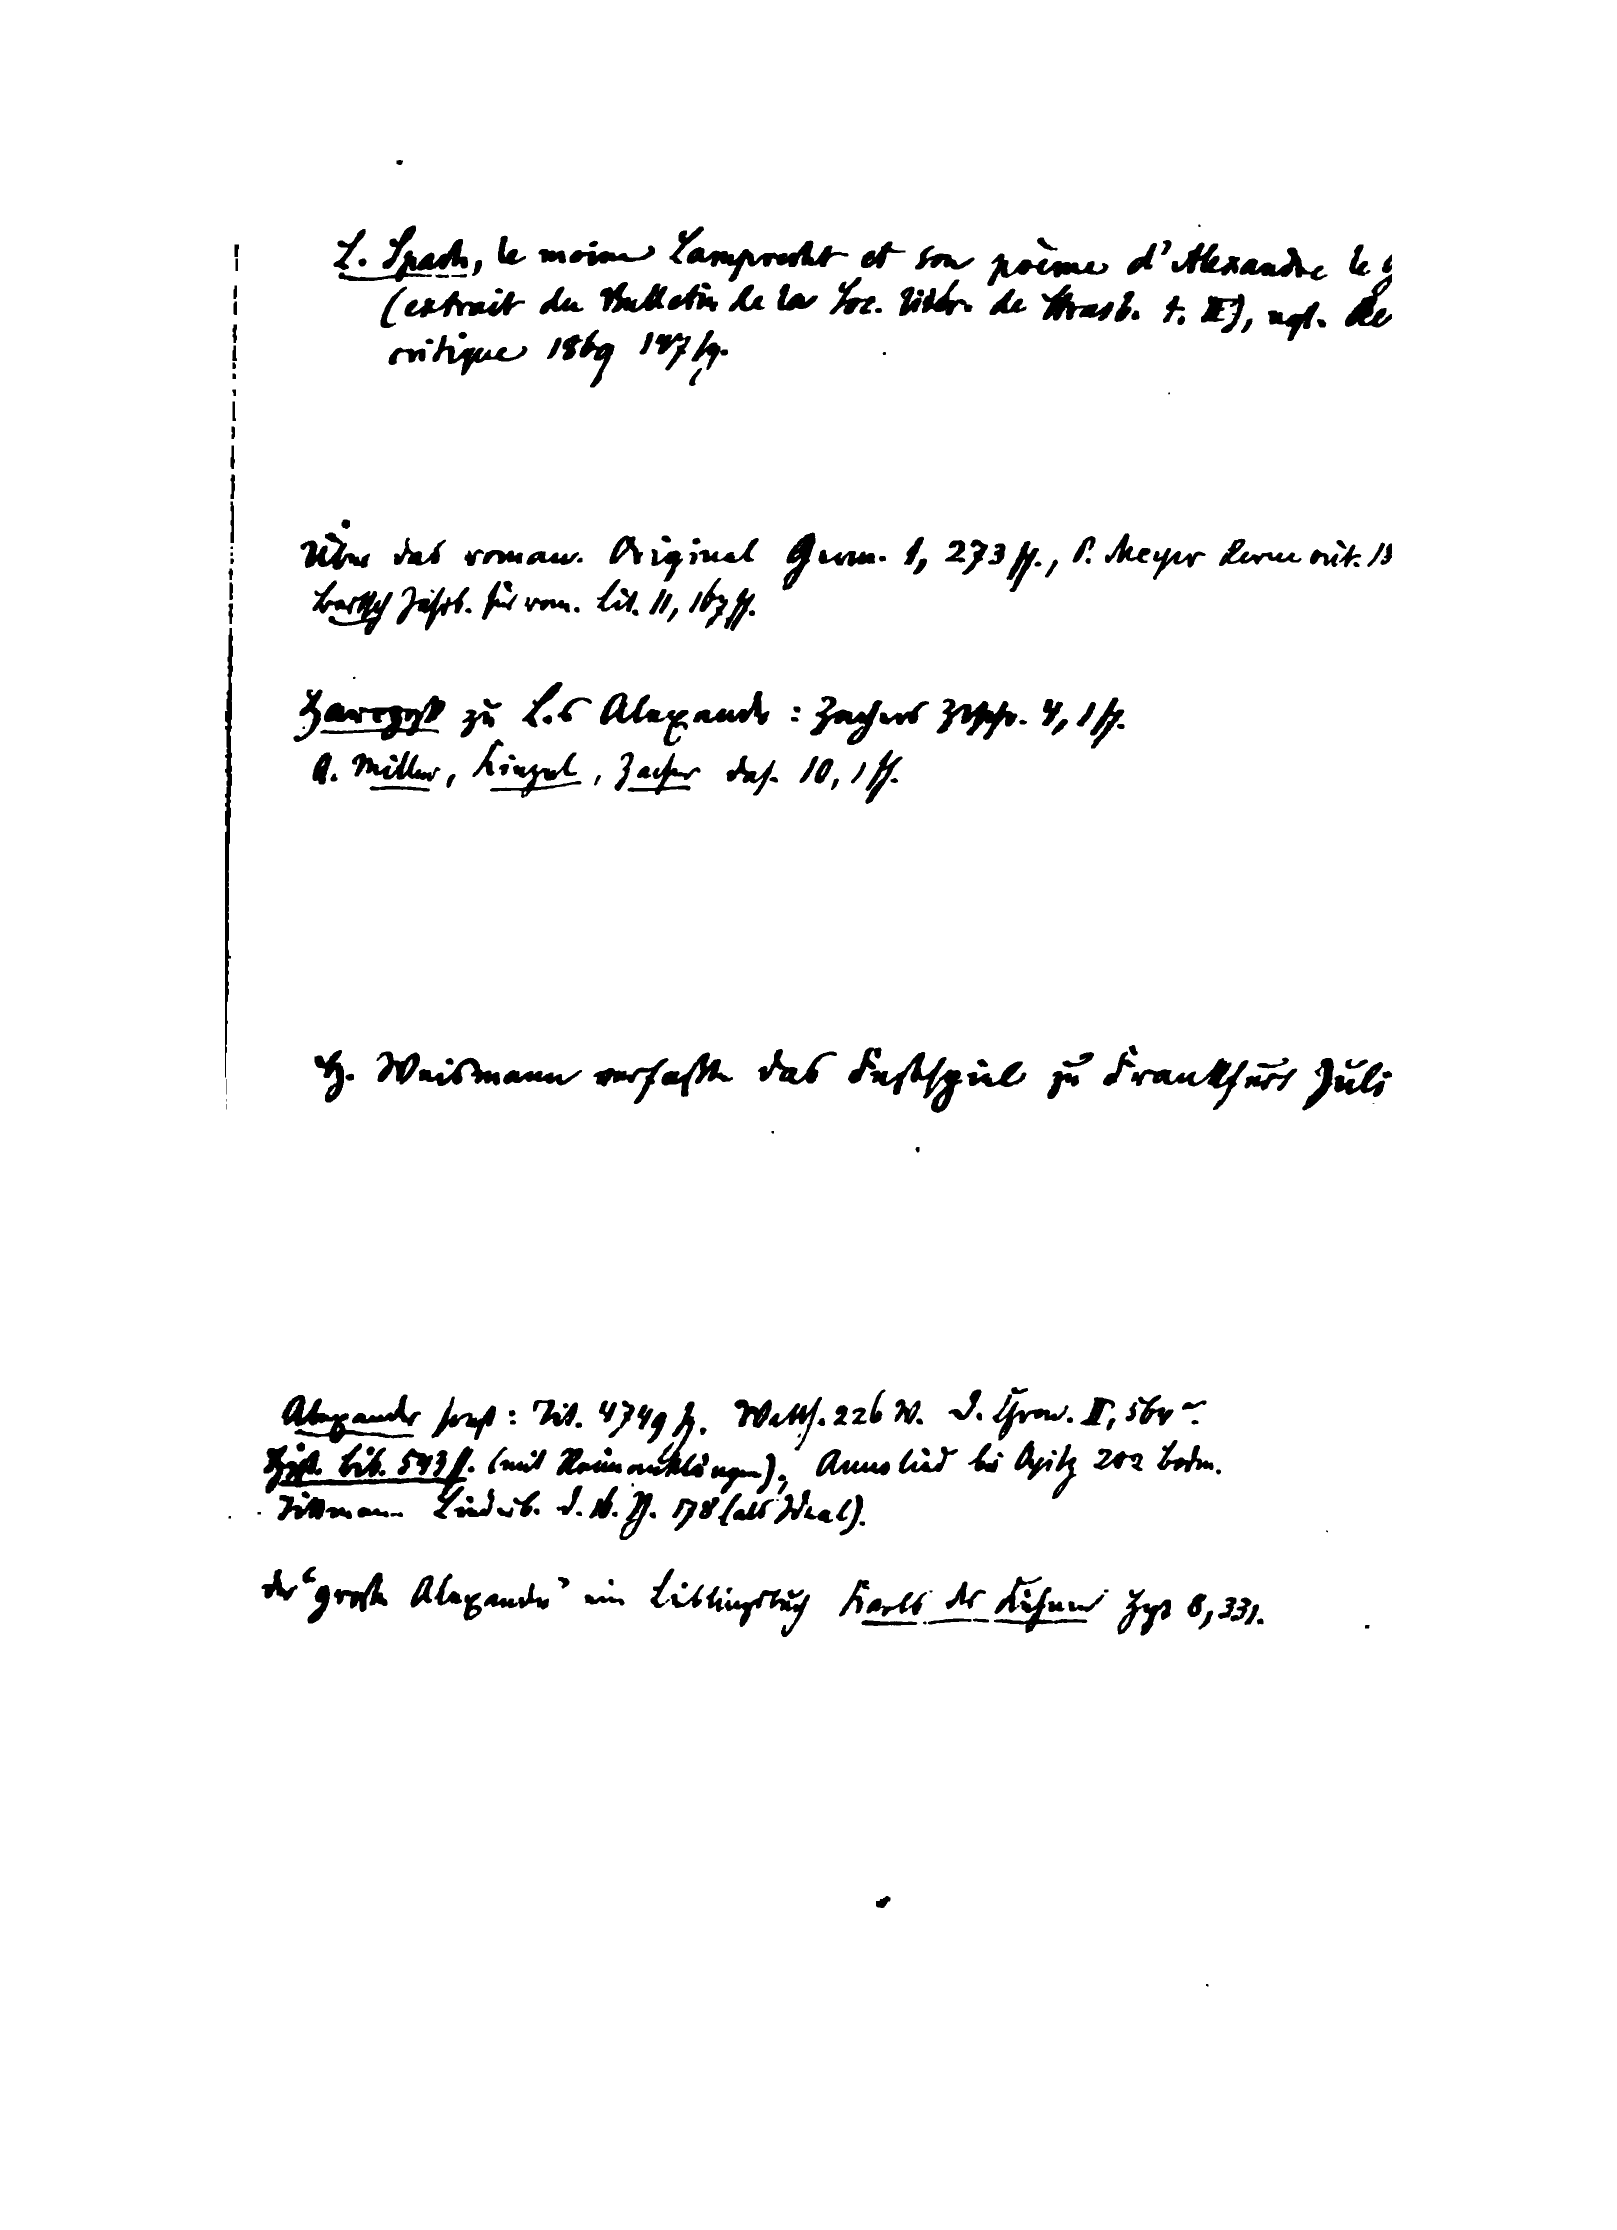 L. Spach, le moine Lamprecht et son poème d'Alexandre le g
(extrait du Bulletin de la Soc. littér. de Strasb. t. III), vgl. Re
critique 1869 187 fg.
Über das roman. Original Germ. 1, 273 ff., P. Meyer Revue crit. 18
Bartsch Jahrb. für rom. Lit. 11, 167 ff.
Harczyk zu L.s Alexander: Zachers Ztschr. 4, 1 ff.
A. Miller, Kinzel, Zacher das. 10, 1 ff.
H. Weismann verfaßte das Festspiel zu Frankfurt Juli
Alexander sonst: Tit. 4749 fg. 226 W. II,
Hist. Bib. 543 ff. (mit Reimanklängen), Annolied bei Opitz 202 Bodm.
Tittmann Liederb. 178 (als Ideal).
der "große Alexander" ein Lieblingsbuch Karls des Kühnen 8, 331.